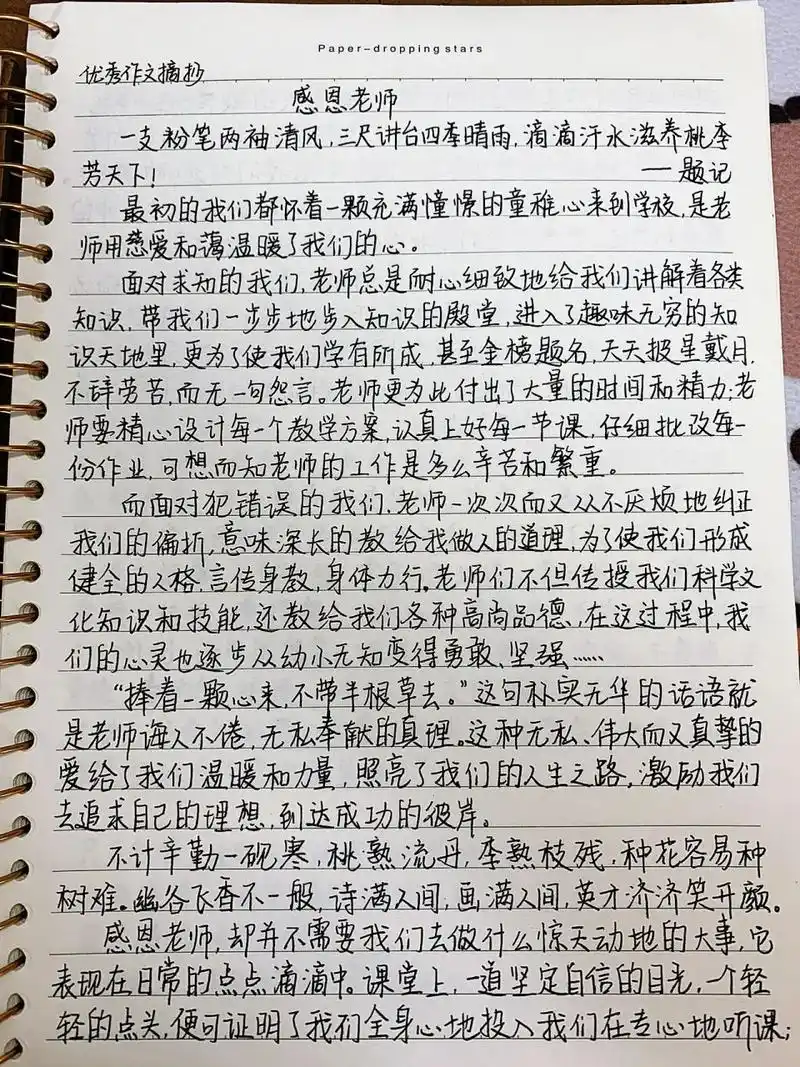 Paper-dropping stars
优秀作文摘抄
感恩老师
一支粉笔两袖清风,三尺讲台四季晴雨,滴滴汗水滋养桃李
芳天下!
——题记
最初的我们都怀着一颗充满憧憬的童稚心来到学校,是老
师用慈爱和蔼温暖了我们的心。
面对求知的我们,老师总是耐心细致地给我们讲解着各类
知识,带我们一步步地步入知识的殿堂,进入了趣味无穷的知
识天地里,更为了使我们学有所成,甚至金榜题名,天天披星戴月,
不辞劳苦,而无一句怨言。老师更为此付出了大量的时间和精力;老
师要精心设计每一个教学方案,认真上好每一节课,仔细批改每一
份作业,可想而知老师的工作是多么辛苦和繁重。
而面对犯错误的我们,老师一次次而又从不厌烦地纠正
我们的偏折,意味深长的教给我做人的道理,为了使我们形成
健全的人格,言传身教,身体力行。老师们不但传授我们科学文
化知识和技能,还教给我们各种高尚品德,在这过程中,我
们的心灵也逐步从幼小无知变得勇敢、坚强……
“捧着一颗心来,不带半根草去。”这句朴实无华的话语就
是老师诲人不倦,无私奉献的真理。这种无私、伟大而又真挚的
爱给了我们温暖和力量,照亮了我们的人生之路,激励我们
去追求自己的理想,到达成功的彼岸。
不计辛勤一砚寒,桃熟流丹,李熟枝残,种花容易种
树难。幽谷飞香不一般,诗满人间,画满人间,英才济济笑开颜。
感恩老师,却并不需要我们去做什么惊天动地的大事,它
表现在日常的点点滴滴中。课堂上,一道坚定自信的目光,一个轻
轻的点头,便可证明了我们全身心地投入我们在专心地听课;